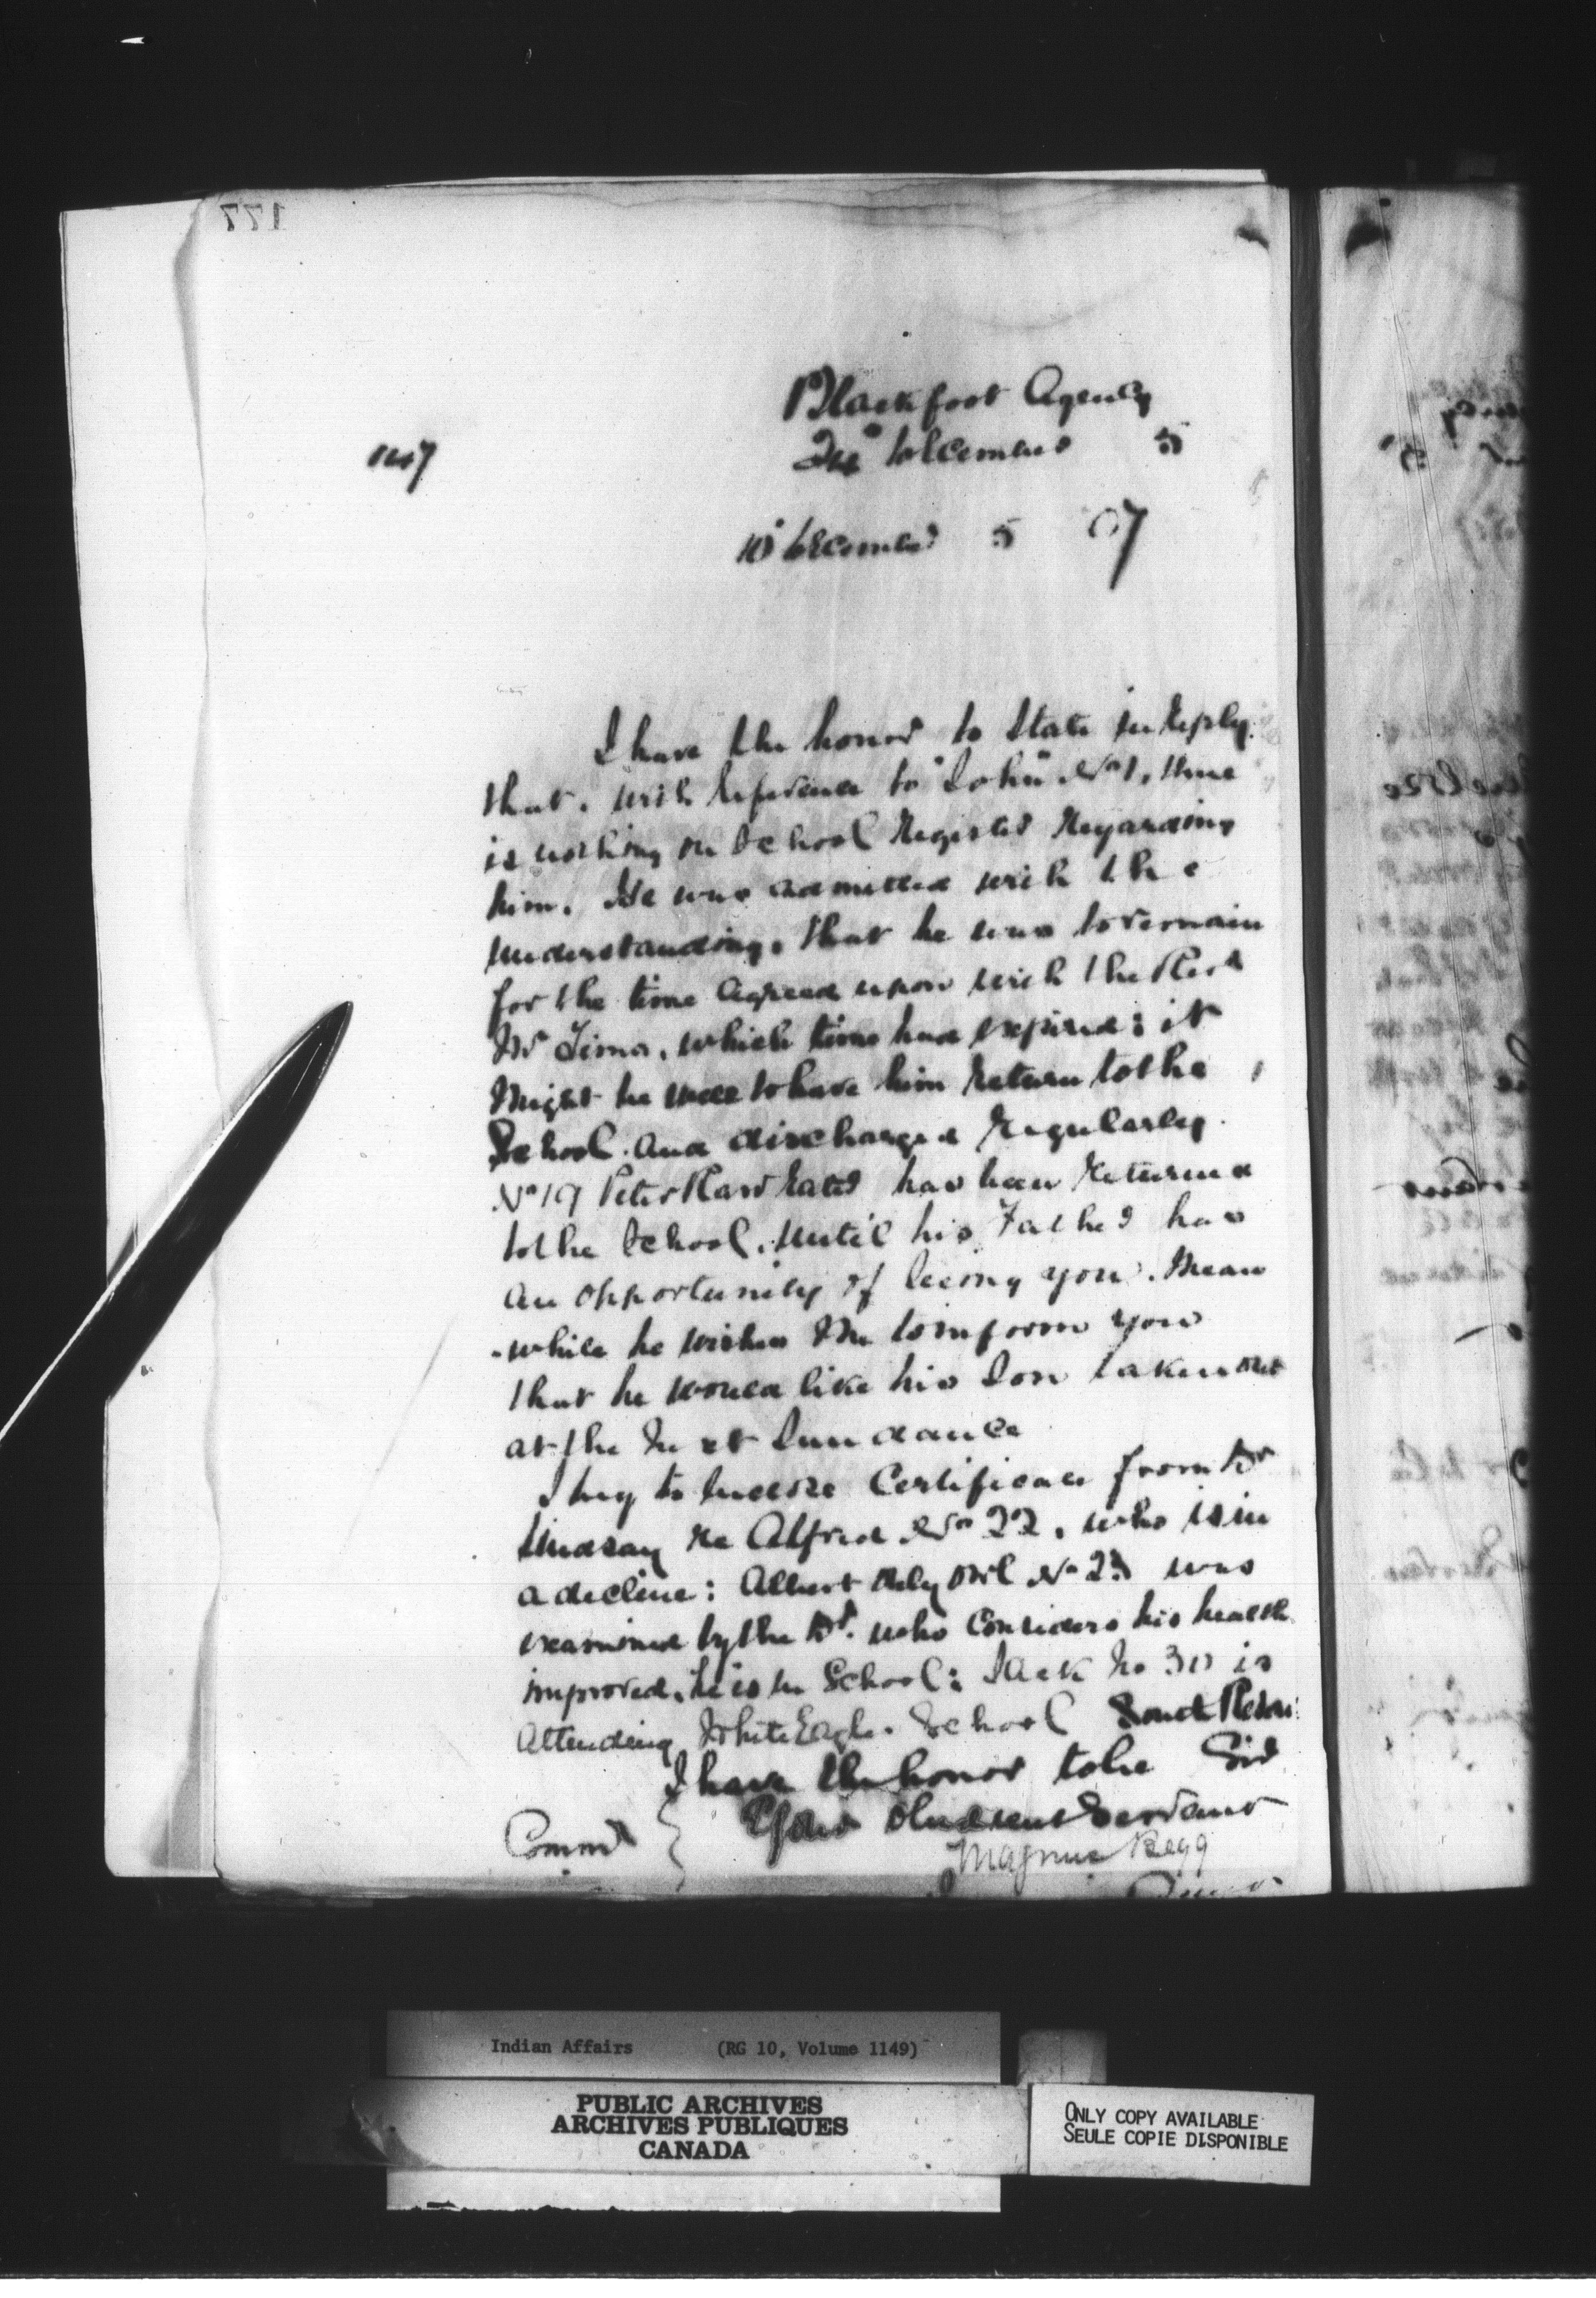 177
Blackfoot Agency
24th December 5
147
10 December 5 07
I have the honor to State in reply
that, with reference to "John" No 1, there
is nothing on School Register regarding
him. He was admitted with the
understanding, that he was to remain
for the time agreed upon with the Revd
Mr Tims, which time had expired: it
might be well to have him return to the
School and discharged regularly.
No 19 Peter Raw Eater has been returned
to the School, until his Father has
an opportunity of seeing you. Mean
-while he wishes me to inform you
that he would like his son taken out
at the next Sun dance
I beg to inclose Certificate from Dr
Lindsay re Alfred No 22, who is in
a decline: Albert Only Owl No 23 was
examined by the Dr. who considers his health
improved, he is in School: Jack No 30 is
attending White Eagle School South Reserve
I have the honor to be Sir
Your obedient Servant
Commr
Magnus Begg
Indian Affairs (RG 10, Volume 1149)
PUBLIC ARCHIVES
ARCHIVES PUBLIQUES
CANADA
ONLY COPY AVAILABLE
SEULE COPIE DISPONIBLE